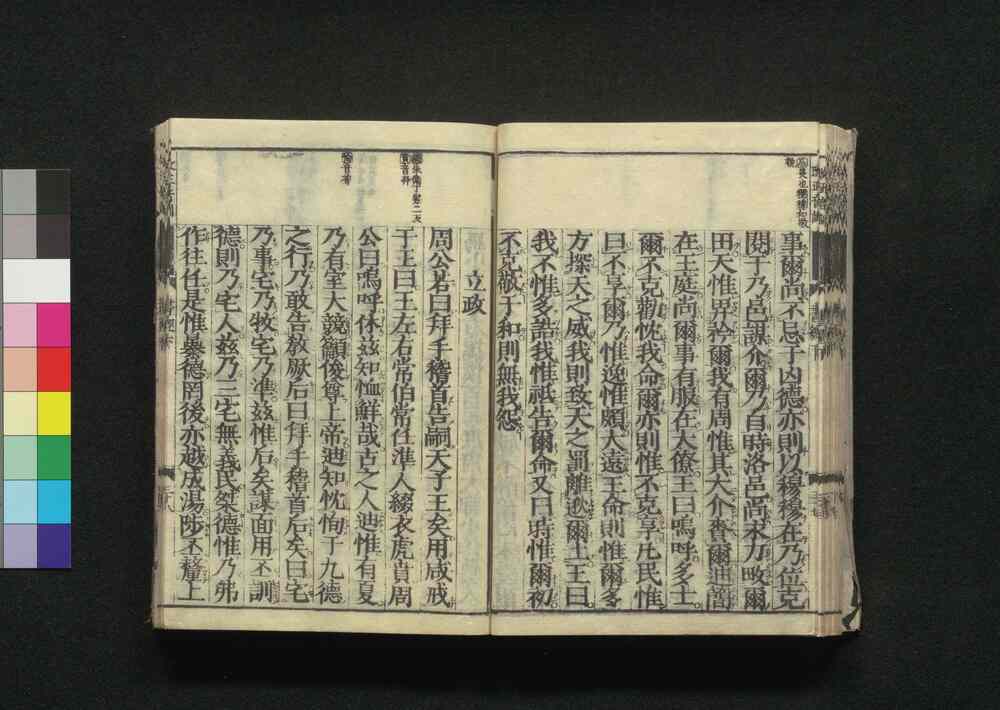 事爾尚不忌于凶德亦則以穆穆在乃位克
閱于乃邑謀介爾乃自時洛邑尚永力畋爾
田天惟畀矜爾我有周惟其大介賚爾迪簡
在王庭尚爾事有服在大僚王曰嗚呼多士
爾不克勸忱我命爾亦則惟不克享凡民惟
曰不享爾乃惟逸惟頗大遠王命則惟爾多
方探天之威我則致天之罰離逖爾土王曰
我不惟多誥我惟祗告爾命又曰時惟爾初
不克敬于和則無我怨
立政
周公若曰拜手稽首告嗣天子王矣用咸戒
于王曰王左右常伯常任準人綴衣虎賁周
公曰嗚呼休茲知恤鮮哉古之人迪惟有夏
乃有室大競籲俊尊上帝迪知忱恂于九德
之行乃敢告教厥后曰拜手稽首后矣曰宅
乃事宅乃牧宅乃準茲惟后矣謀面用丕訓
德則乃宅人茲乃三宅無義民桀德惟乃弗
作往任是惟暴德罔後亦越成湯陟丕釐上